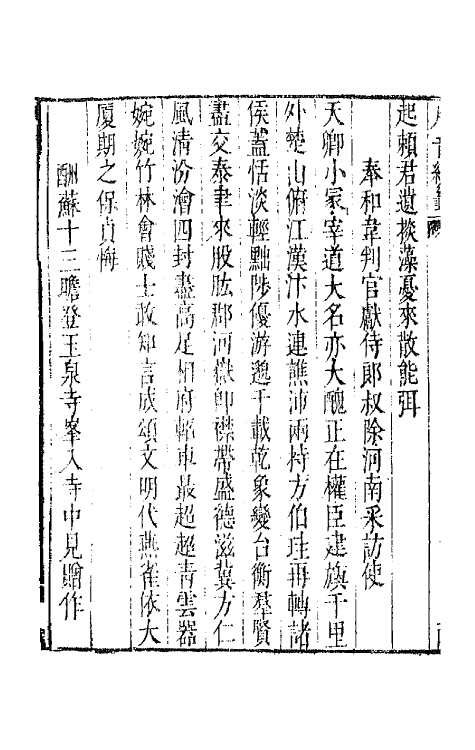 起賴君遺掞藻憂來散能弭
奉和韋判官獻侍郎叔除河南采訪使
天卿小冢宰道大名亦大醜正在權臣建旗千里
外楚山俯江漢汴水連譙沛兩持方伯珪再轉諸
侯蓋恬淡輕黜陟優游邈千載乾象變台衡羣賢
盡交泰聿來股肱郡河嶽卽襟帶盛德滋冀方仁
風清汾澮四封盡高足相府軺車最超超青雲器
婉婉竹林會賤士敢知言成頌文明代燕雀依大
廈期之保貞悔
酬蘇十三瞻登玉泉寺峯入寺中見贈作